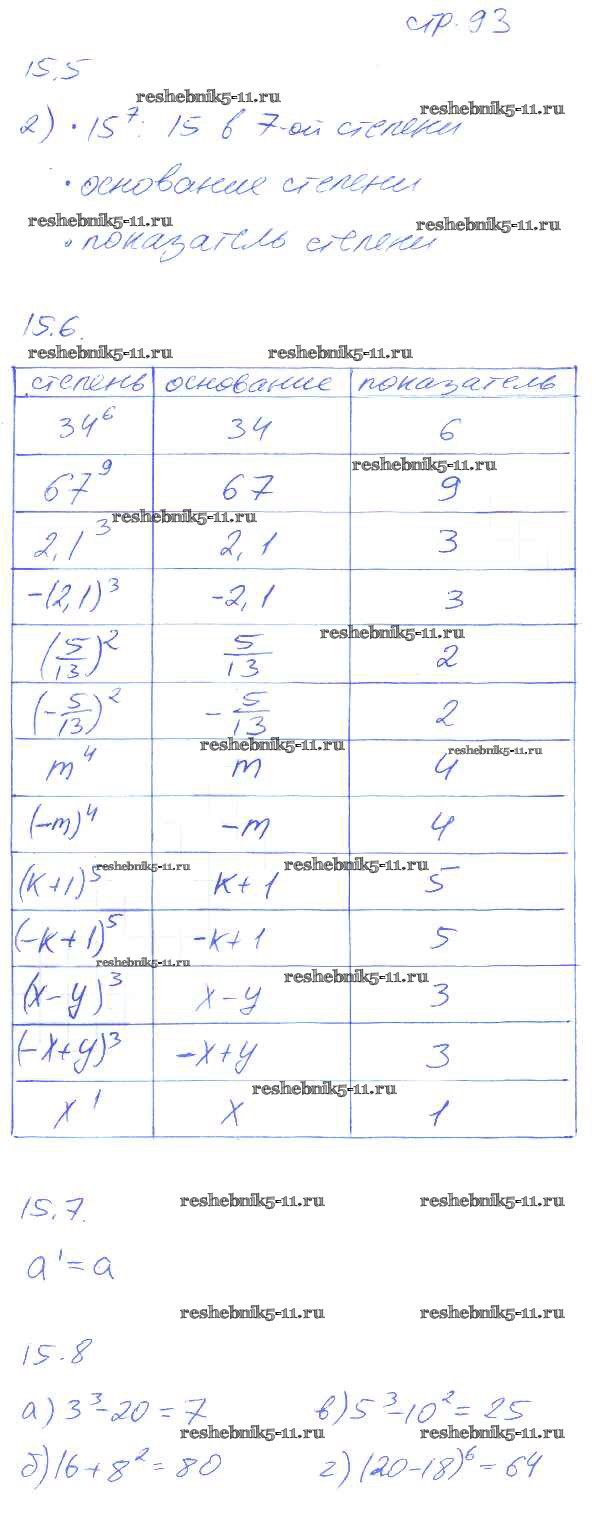 стр. 93
15.5
reshebnik5-11.ru reshebnik5-11.ru
2) • 15⁷: 15 в 7-ой степени
• основание степени
reshebnik5-11.ru reshebnik5-11.ru
• показатель степени
15.6.
reshebnik5-11.ru reshebnik5-11.ru
степень основание показатель
34⁶ 34 6
reshebnik5-11.ru
67⁹ 67 9
reshebnik5-11.ru
2,1³ 2,1 3
-(2,1)³ -2,1 3
reshebnik5-11.ru
(5/13)² 5/13 2
(-5/13)² -5/13 2
reshebnik5-11.ru reshebnik5-11.ru
m⁴ m 4
(-m)⁴ -m 4
reshebnik5-11.ru reshebnik5-11.ru
(k+1)⁵ k+1 5
(-k+1)⁵ -k+1 5
reshebnik5-11.ru reshebnik5-11.ru
(x-y)³ x-y 3
(-x+y)³ -x+y 3
reshebnik5-11.ru
x¹ x 1
15.7. reshebnik5-11.ru reshebnik5-11.ru
a¹=a
reshebnik5-11.ru reshebnik5-11.ru
15.8
а) 3³-20=7 в) 5³-10²=25
reshebnik5-11.ru reshebnik5-11.ru
б) 16+8²=80 г) (20-18)⁶=64